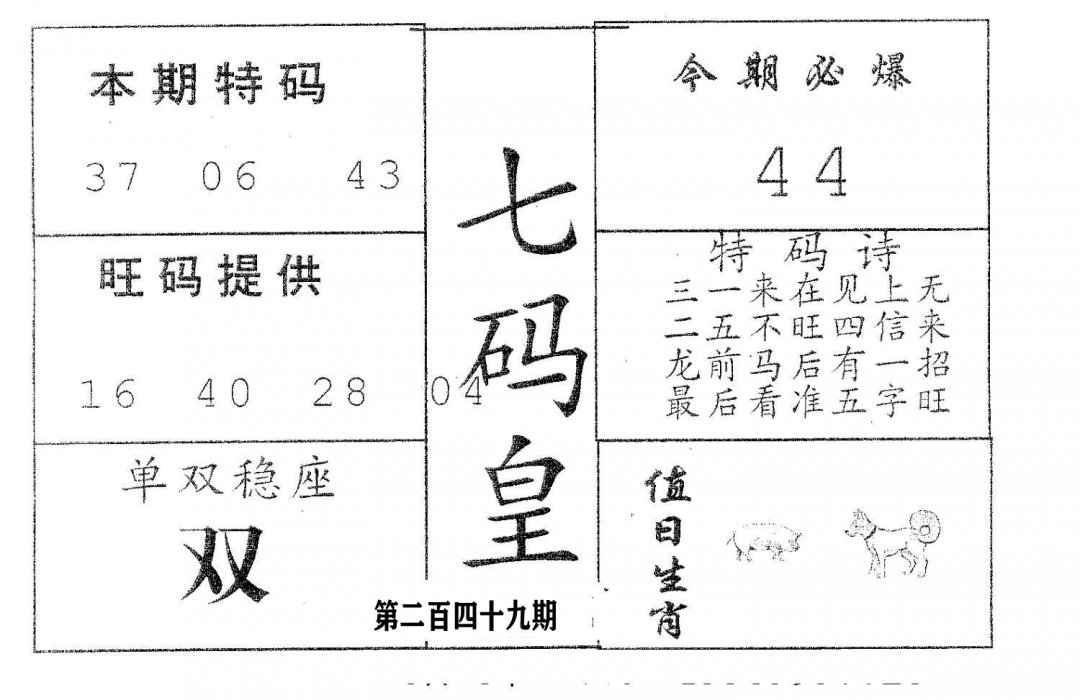 本期特码
37 06 43
旺码提供
16 40 28 04
单双稳座
双
七码皇
第二百四十九期
今期必爆
44
特码诗
三一来在见上无
二五不旺四信来
龙前马后有一招
最后看准五字旺
值日生肖